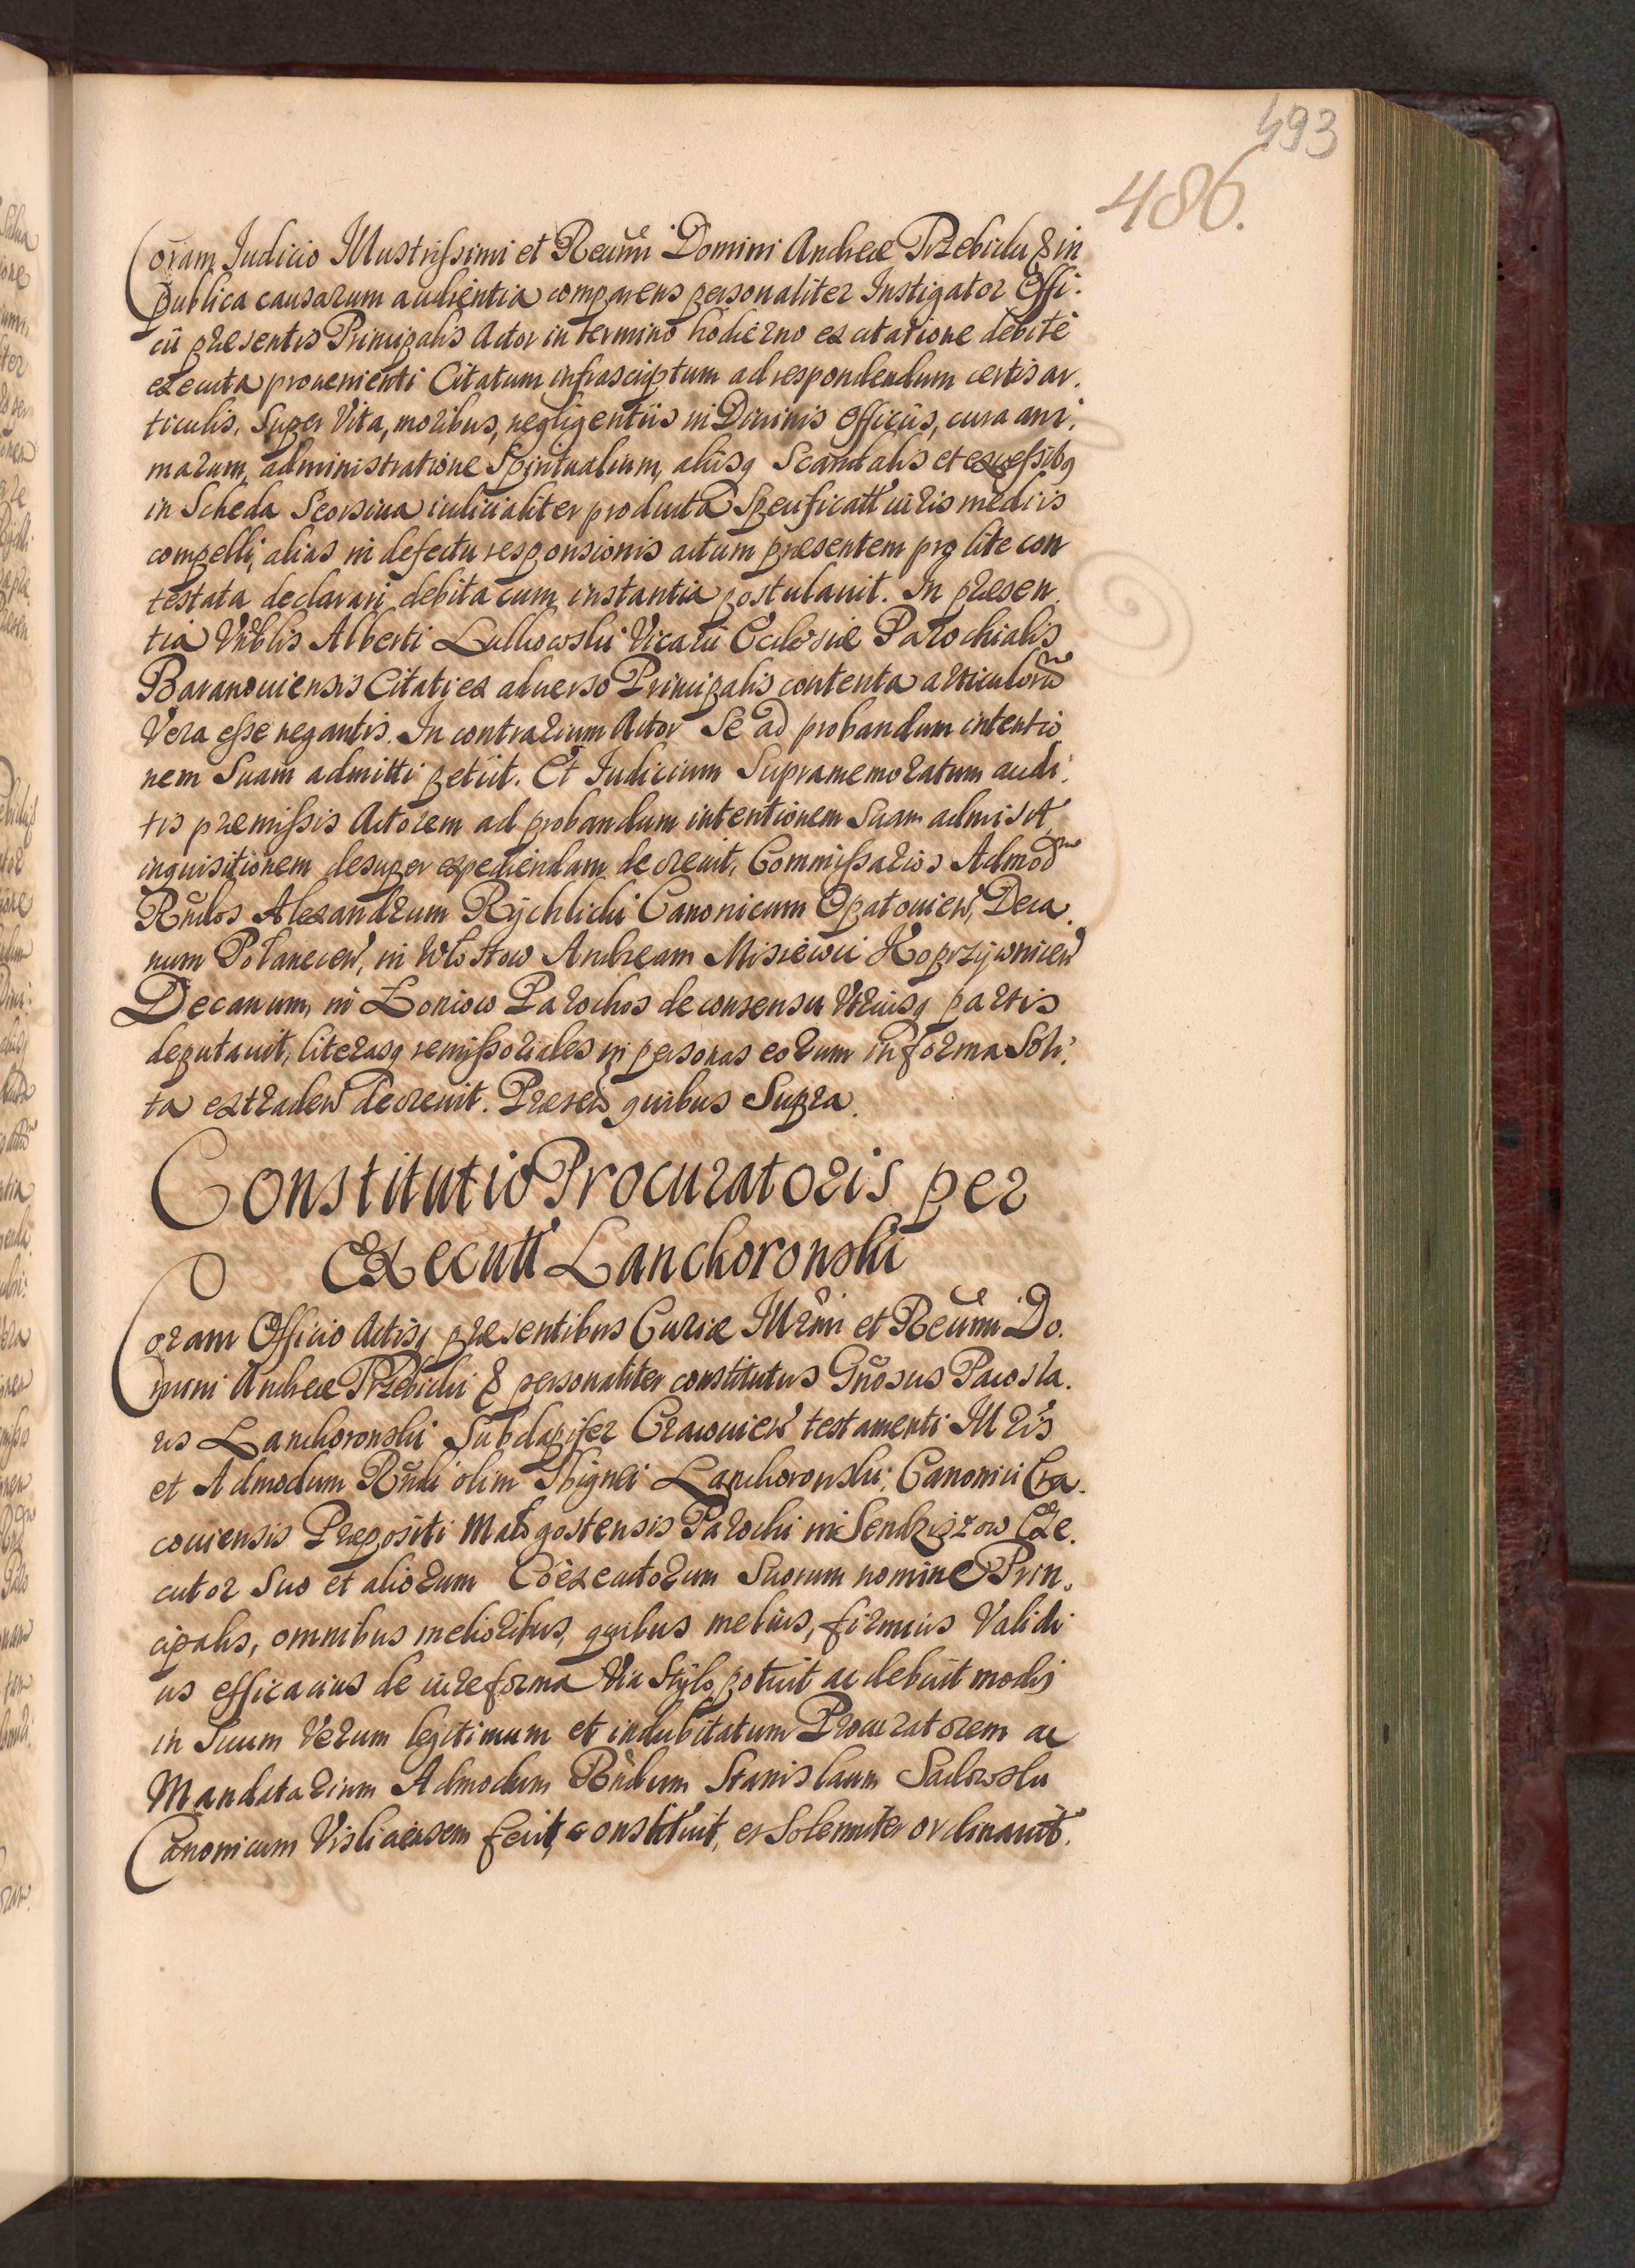 493
486.
Coram Judicio Illustrissimi et Reuñi Domini Andreæ Trzebicki & in
publica causarum audientia comparens personaliter Instigator Offi:
cii præsentis Principalis Actor in termino hodierno ex citatione debite
executa provenienti Citatum infrascriptum ad respondendum certis ar.
ticulis, Super Vita, moribus, negligentiis in Divinis officiis, cura ani:
marum, administratione Spiritualium, aliisq Scandalis et excessibq
in Scheda Seorsiua iudicialiter producta Specificatt iuris mediis
compelli, alias in defectu responsionis actum præsentem prq lite con
testata declarari debita cum instantia postulauit. In præsen,
tia Vñblis Alberti Lulkowski Vicarii Ecclesiæ Parochialis
Baranouiensis Citati ex aduerso Principalis contenta articulorũ
Vera esse negantis. In contrarium Actor Se ad probandum intentio
nem Suam admitti petiit. Et Iudicium Supramemoratum audi:
tis præmissis Actorem ad probandum intentionem Suam admisit,
inquisitionem desuper expediendam decreuit, Commissarios Admod
Rñdos Alexandrum Rychlicki Canonicum Opatouien, Deca.
num Połanecen, in Włostow Andream Misiewic Koprzywnicen
Decanum, in Łoniow Parochos de consensu Vtriusq partis
deputauit, literasq remissoriales in personas eorum in forma Soli:
ta extraden decreuit. Præsen quibus Supra.
Constitutio Procuratoris per
Executt Lanckoronski
Coram Officio Actisq præsentibus Curiæ Illrmi et Reuñi Do.
mini Andreæ Trzebicki & personaliter constitutus Gnosus Pacosla.
us Lanckoronski Subdapifer Cracouien testamenti Illris
et Admodum Rñdi olim Sbignei Lanckoronski, Canonici Cra.
couiensis Præpositi Małogostensis Parochi in Sendziszow Exe.
cutor Suo et aliorum Coexecutorum Suorum nomine Prin,
cipalis, omnibus melioribus, quibus melius, firmius Validi
us efficacius de iure forma Via Stylo, potuit ac debuit modis
in Suum Verum legitimum et indubitatum Procuratorem ac
Mandatarium Admodum Rñdum Stanislaum Sadowski
Canonicum Visliciensem fecit, constituit, et Solemniter ordinauit.